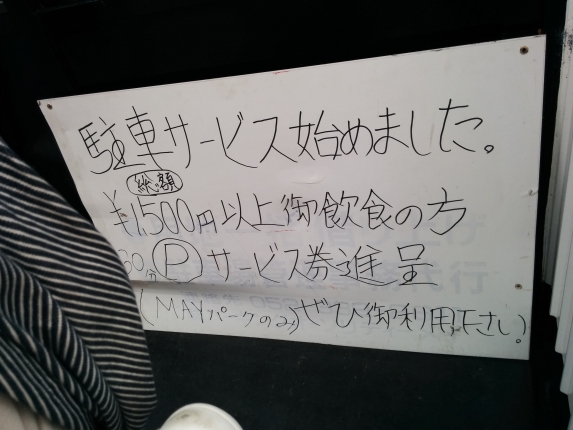 駐車サービス始めました。
総額
¥1,500円以上御飲食の方
30分Ⓟサービス券進呈
(MAYパークのみ)ぜひ御利用下さい!